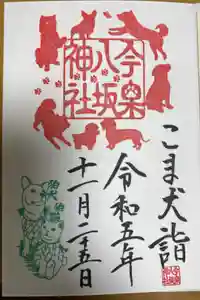 今泉
八坂
神社
こま犬詣
令和五年
十一月二十五日